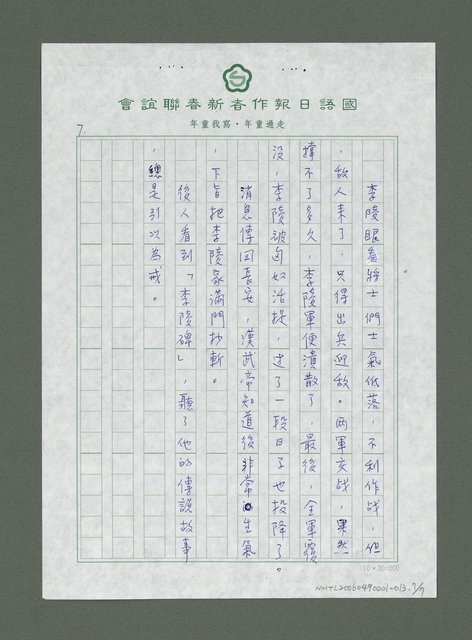 國語日報作者新春聯誼會
走過童年・寫我童年
7.
李陵眼看將士們士氣低落，不利作战，但
，敌人来了，只得出兵迎敌。两軍交战，果然
撑不了多久，李陵軍便潰散了，最後，全軍覆
没，李陵被匈奴活捉，过了一段日子也投降了。
消息傳回長安，漢武帝知道後非常生氣
，下旨把李陵家滿門抄斬。
後人看到「李陵碑」，聽了他的傳説故事
，總是引以為戒。
10×20=200
NMTL20060490001-013-7/7